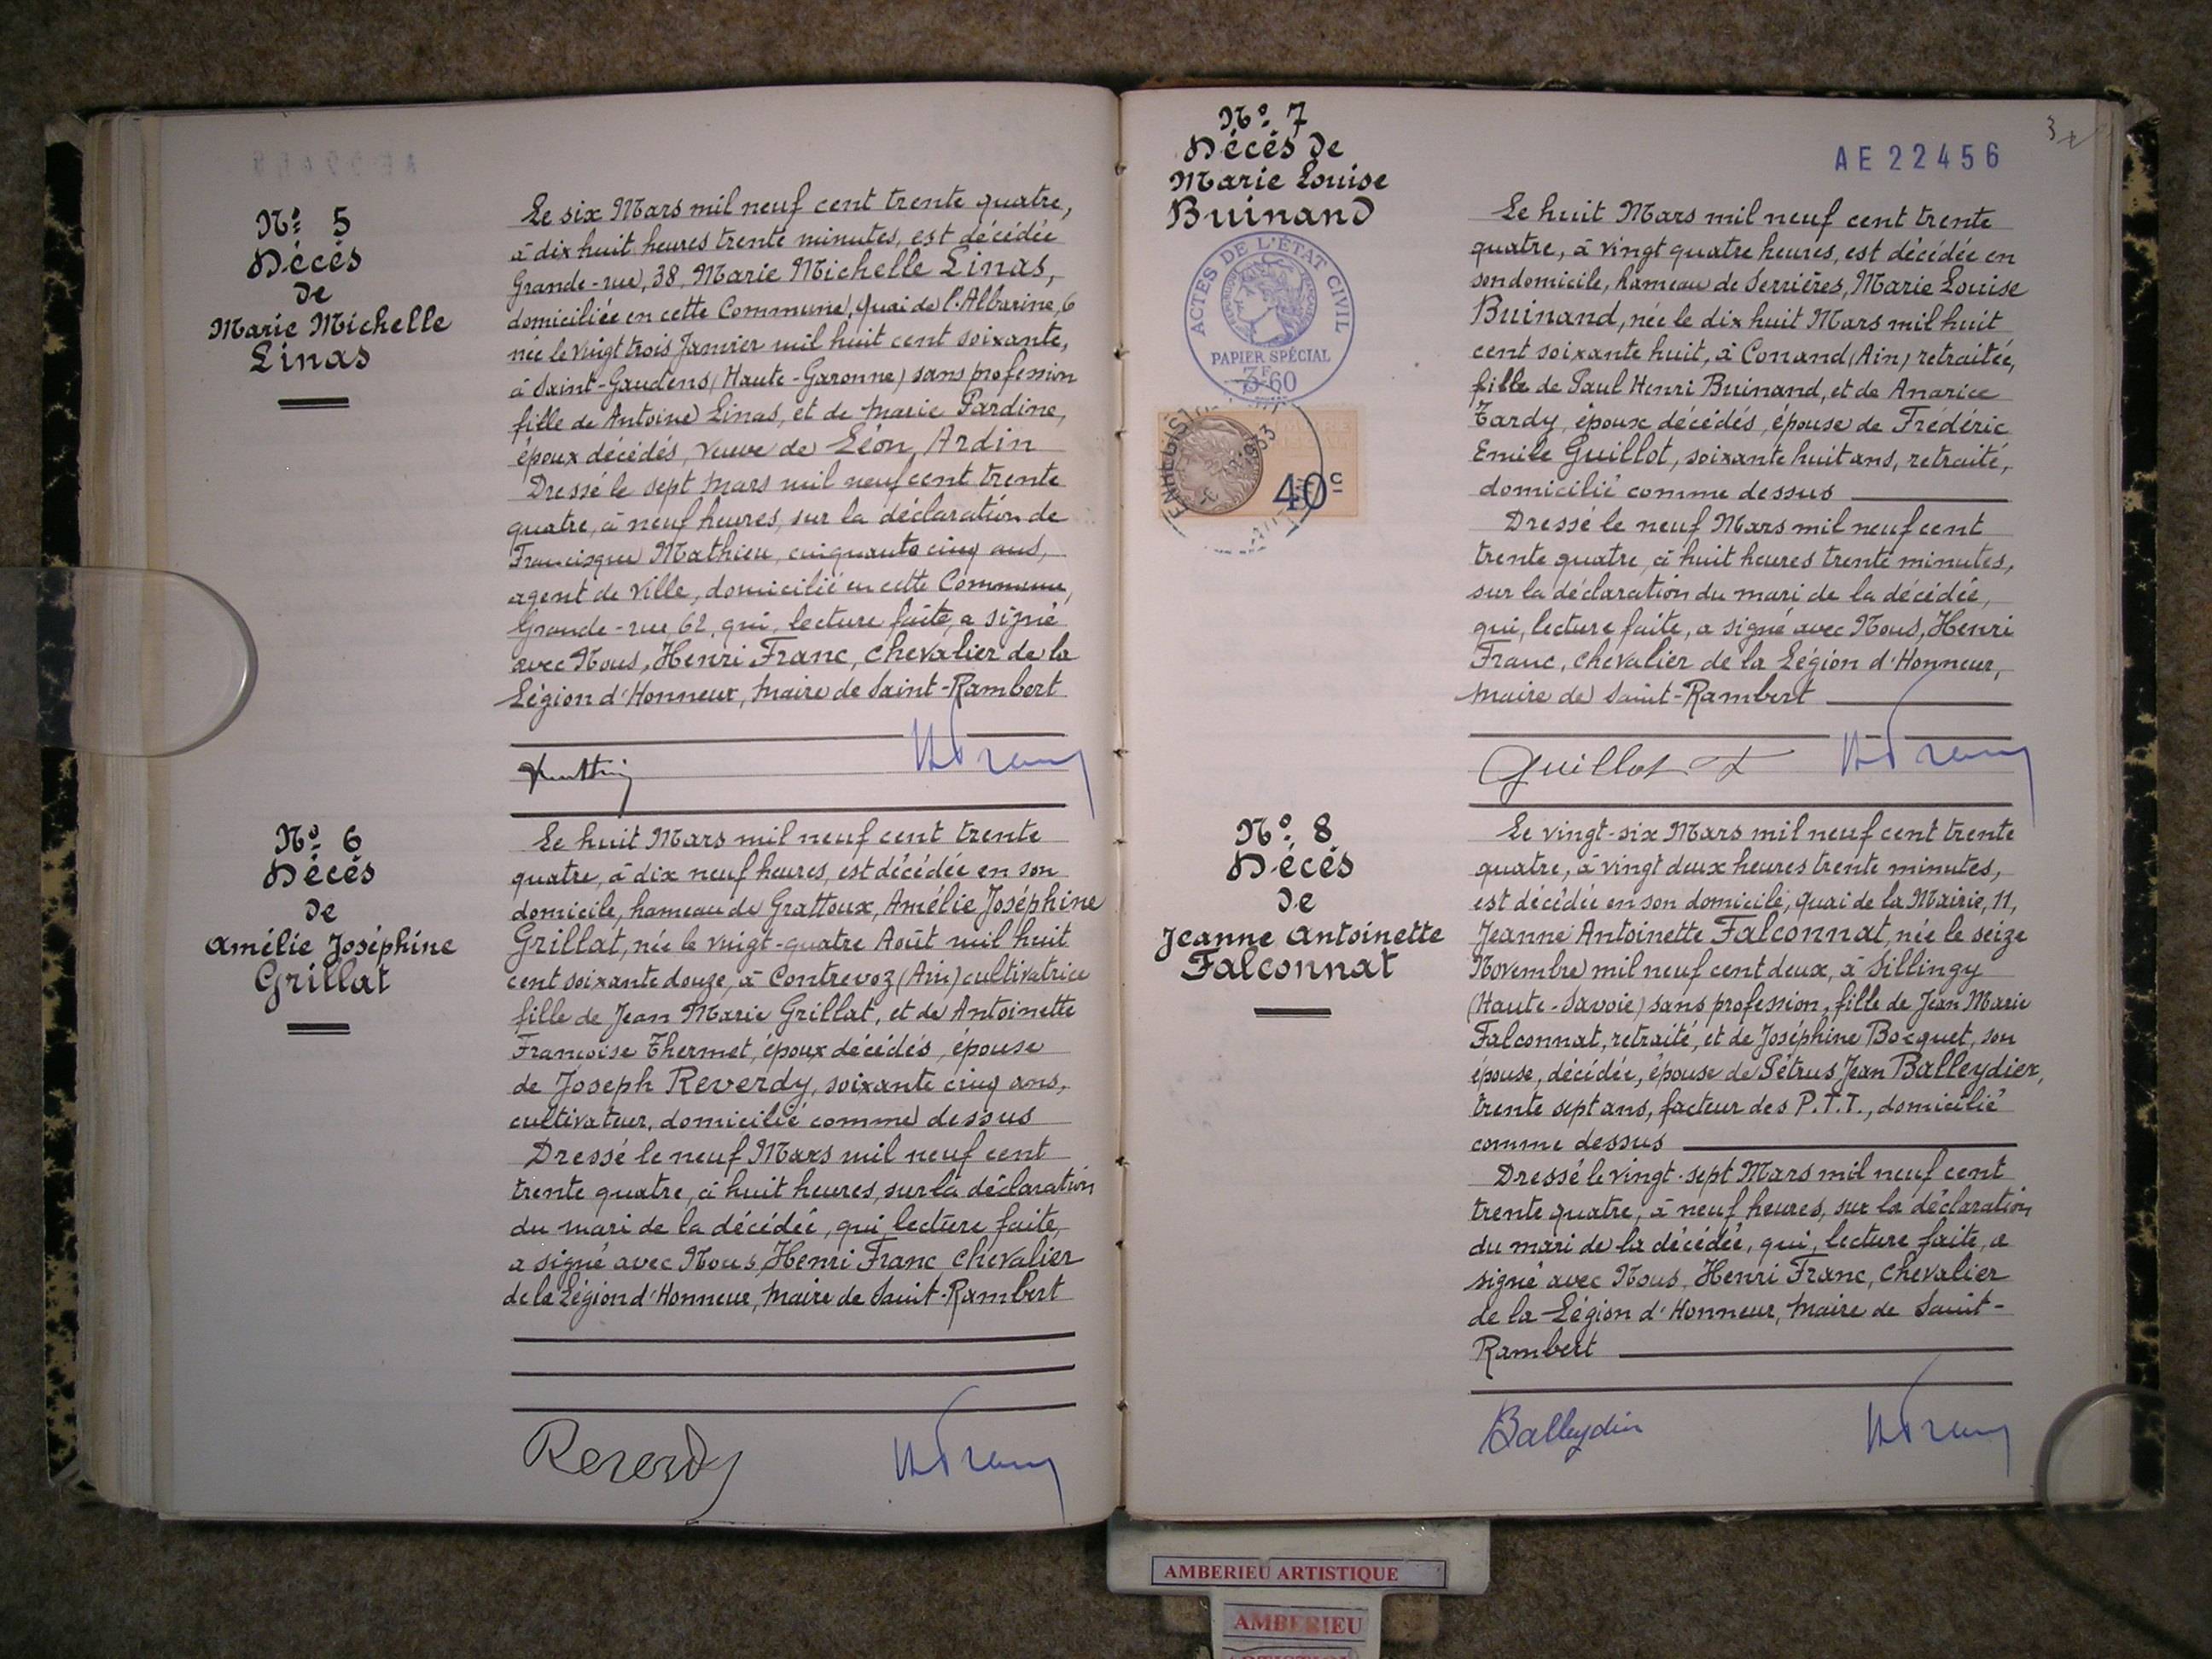 Nº 5
Décès
de
Marie Michelle
Linas
Le six Mars mil neuf cent trente quatre,
à dix huit heures trente minutes, est décédée
Grande-rue, 38, Marie Michelle Linas,
domiciliée en cette Commune, quai de l'Albarine, 6
née le vingt trois Janvier mil huit cent soixante,
à Saint-Gaudens (Haute-Garonne) sans profession
fille de Antoine Linas, et de Marie Pardine,
époux décédés, veuve de Léon Ardin
Dressé le sept Mars mil neuf cent trente
quatre, à neuf heures, sur la déclaration de
Francisque Mathieu, cinquante cinq ans,
agent de Ville, domicilié en cette Commune,
Grande-rue, 62, qui, lecture faite, a signé
avec Nous, Henri Franc, Chevalier de la
Légion d'Honneur, Maire de Saint-Rambert
Nº 6
Décès
de
Amélie Joséphine
Grillat
Le huit Mars mil neuf cent trente
quatre, à dix neuf heures, est décédée en son
domicile, hameau de Grattoux, Amélie Joséphine
Grillat, née le vingt-quatre Août mil huit
cent soixante douze, à Contrevoz (Ain) cultivatrice
fille de Jean Marie Grillat, et de Antoinette
Françoise Thermet, époux décédés, épouse
de Joseph Reverdy, soixante cinq ans,
cultivateur, domicilié comme dessus
Dressé le neuf Mars mil neuf cent
trente quatre, à huit heures, sur la déclaration
du mari de la décédée, qui, lecture faite,
a signé avec Nous, Henri Franc, Chevalier
de la Légion d'Honneur, Maire de Saint-Rambert
Reverdy
Nº 7
Décès de
Marie Louise
Buinand
ACTES DE L'ÉTAT CIVIL
PAPIER SPÉCIAL
3F60
40c
3
AE 22456
Le huit Mars mil neuf cent trente
quatre, à vingt quatre heures, est décédée en
son domicile, hameau de Serrières, Marie Louise
Buinand, née le dix huit Mars mil huit
cent soixante huit, à Conand (Ain) retraitée,
fille de Paul Henri Buinand, et de Anarice
Tardy, époux décédés, épouse de Frédéric
Emile Guillot, soixante huit ans, retraité,
domicilié comme dessus
Dressé le neuf Mars mil neuf cent
trente quatre, à huit heures trente minutes,
sur la déclaration du mari de la décédée,
qui, lecture faite, a signé avec Nous, Henri
Franc, Chevalier de la Légion d'Honneur,
Maire de Saint-Rambert
Guillot
Nº 8
Décès
de
Jeanne Antoinette
Falconnat
Le vingt-six Mars mil neuf cent trente
quatre, à vingt deux heures trente minutes,
est décédée en son domicile, quai de la Mairie, 11,
Jeanne Antoinette Falconnat, née le seize
Novembre mil neuf cent deux, à Sillingy
(Haute-Savoie) sans profession, fille de Jean Marie
Falconnat, retraité, et de Joséphine Bocquet, son
épouse, décédée, épouse de Pétrus Jean Balleydier,
trente sept ans, facteur des P.T.T., domicilié
comme dessus
Dressé le vingt-sept Mars mil neuf cent
trente quatre, à neuf heures, sur la déclaration
du mari de la décédée, qui, lecture faite, a
signé avec Nous, Henri Franc, Chevalier
de la Légion d'Honneur, Maire de Saint-
Rambert
Balleydier
AMBERIEU ARTISTIQUE
AMBERIEU